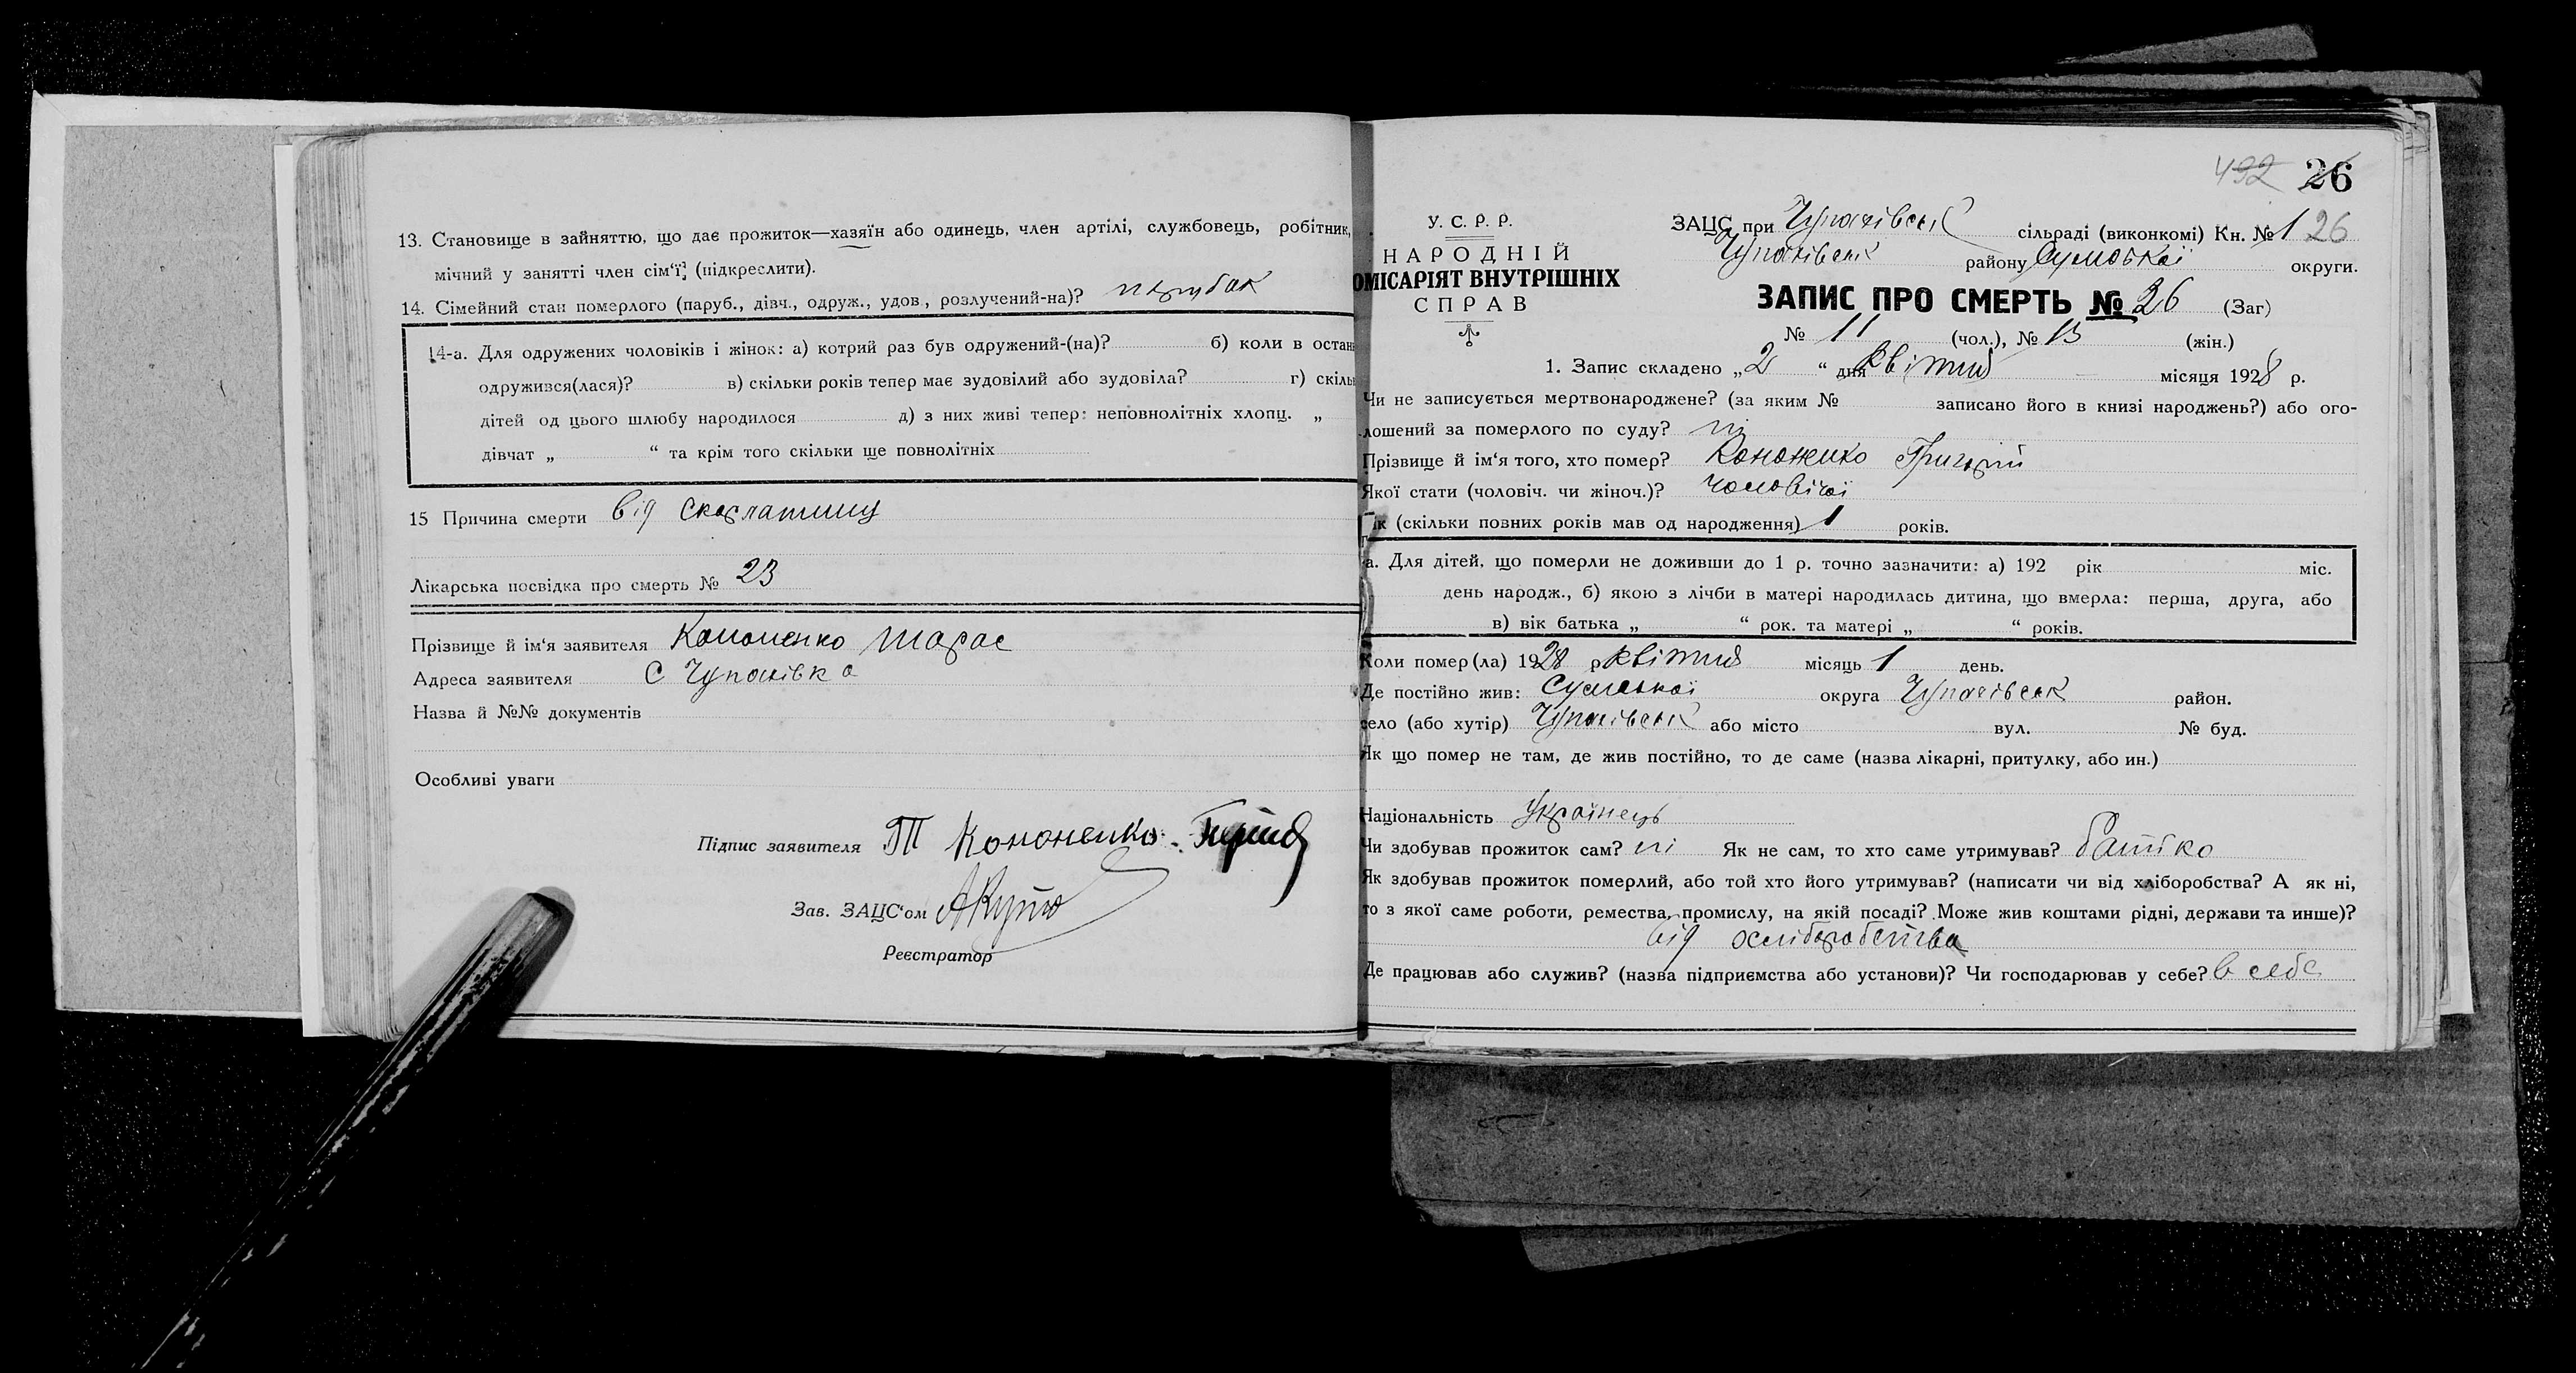 13. Становище в зайняттю, що дає прожиток—хазяїн або одинець, член артілі, службовець, робітник,
мічний у занятті член сім'ї (підкреслити).
14. Сімейний стан померлого (паруб., дівч., одруж., удов., розлучений-на)? парубак
14-а. Для одружених чоловіків і жінок: а) котрий раз був одружений-(на)? б) коли в остан
одружився(лася)? в) скільки років тепер має зудовілий або зудовіла? г) скіль
дітей од цього шлюбу народилося д) з них живі тепер: неповнолітніх хлопц. „
дівчат „ “ та крім того скільки ще повнолітніх
15 Причина смерти від скарлатини
Лікарська посвідка про смерть № 23
Прізвище й ім'я заявителя Кононенко Тарас
Адреса заявителя С Чупахівка
Назва й №№ документів
Особливі уваги
Підпис заявителя Т Кононенко
Зав. ЗАЦС'ом
Реєстратор
492 26
У. С. Р. Р.
НАРОДНІЙ
ОМІСАРІЯТ ВНУТРІШНІХ
СПРАВ
ЗАЦС при Чупахівськ сільраді (виконкомі) Кн. № 1 26
Чупахівськ району Сумської округи.
ЗАПИС ПРО СМЕРТЬ № 26 (Заг)
№ 11 (чол.), № 13 (жін.)
1. Запис складено „2 “ дня квітня місяця 1928 р.
Чи не записується мертвонароджене? (за яким № записано його в книзі народжень?) або ого-
лошений за померлого по суду? ні
Прізвище й ім'я того, хто помер? Кононенко Григорій
Якої стати (чоловіч. чи жіноч.)? чоловічої
ік (скільки повних років мав од народження) 1 років.
а. Для дітей, що померли не доживши до 1 р. точно зазначити: а) 192 рік міс.
день народж., б) якою з лічби в матері народилась дитина, що вмерла: перша, друга, або
в) вік батька „ “ рок. та матері „ “ років.
Коли помер(ла) 1928 р квітня місяць 1 день.
Де постійно жив: Сумської округа Чупахівськ район.
село (або хутір) Чупахівськ або місто вул. № буд.
Як що помер не там, де жив постійно, то де саме (назва лікарні, притулку, або ин.)
Національність Українець
Чи здобував прожиток сам? ні Як не сам, то хто саме утримував? батько
Як здобував прожиток померлий, або той хто його утримував? (написати чи від хліборобства? А як ні,
то з якої саме роботи, ремества, промислу, на якій посаді? Може жив коштами рідні, держави та инше)?
від хліборобства
Де працював або служив? (назва підприємства або установи)? Чи господарював у себе? в себе